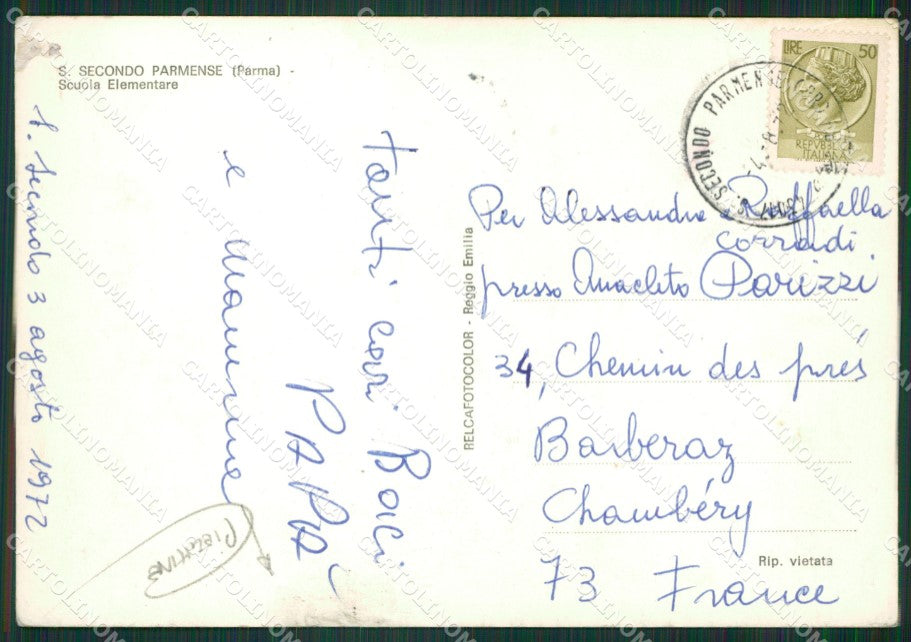 S. SECONDO PARMENSE (Parma)
Scuola Elementare
S. Secondo 3 agosto 1972
Tanti cari Baci
PAPÀ
e mamma
RELCAFOTOCOLOR - Reggio Emilia
LIRE 50
REPVBBLICA
ITALIANA
S. SECONDO PARMENSE
43017
Per Alessandro e Raffaella
Corradi
presso Anacleto Parizzi
34, Chemin des prés
Barberaz
Chambéry
73 France
Rip. vietata
CARTOLINOMANIA